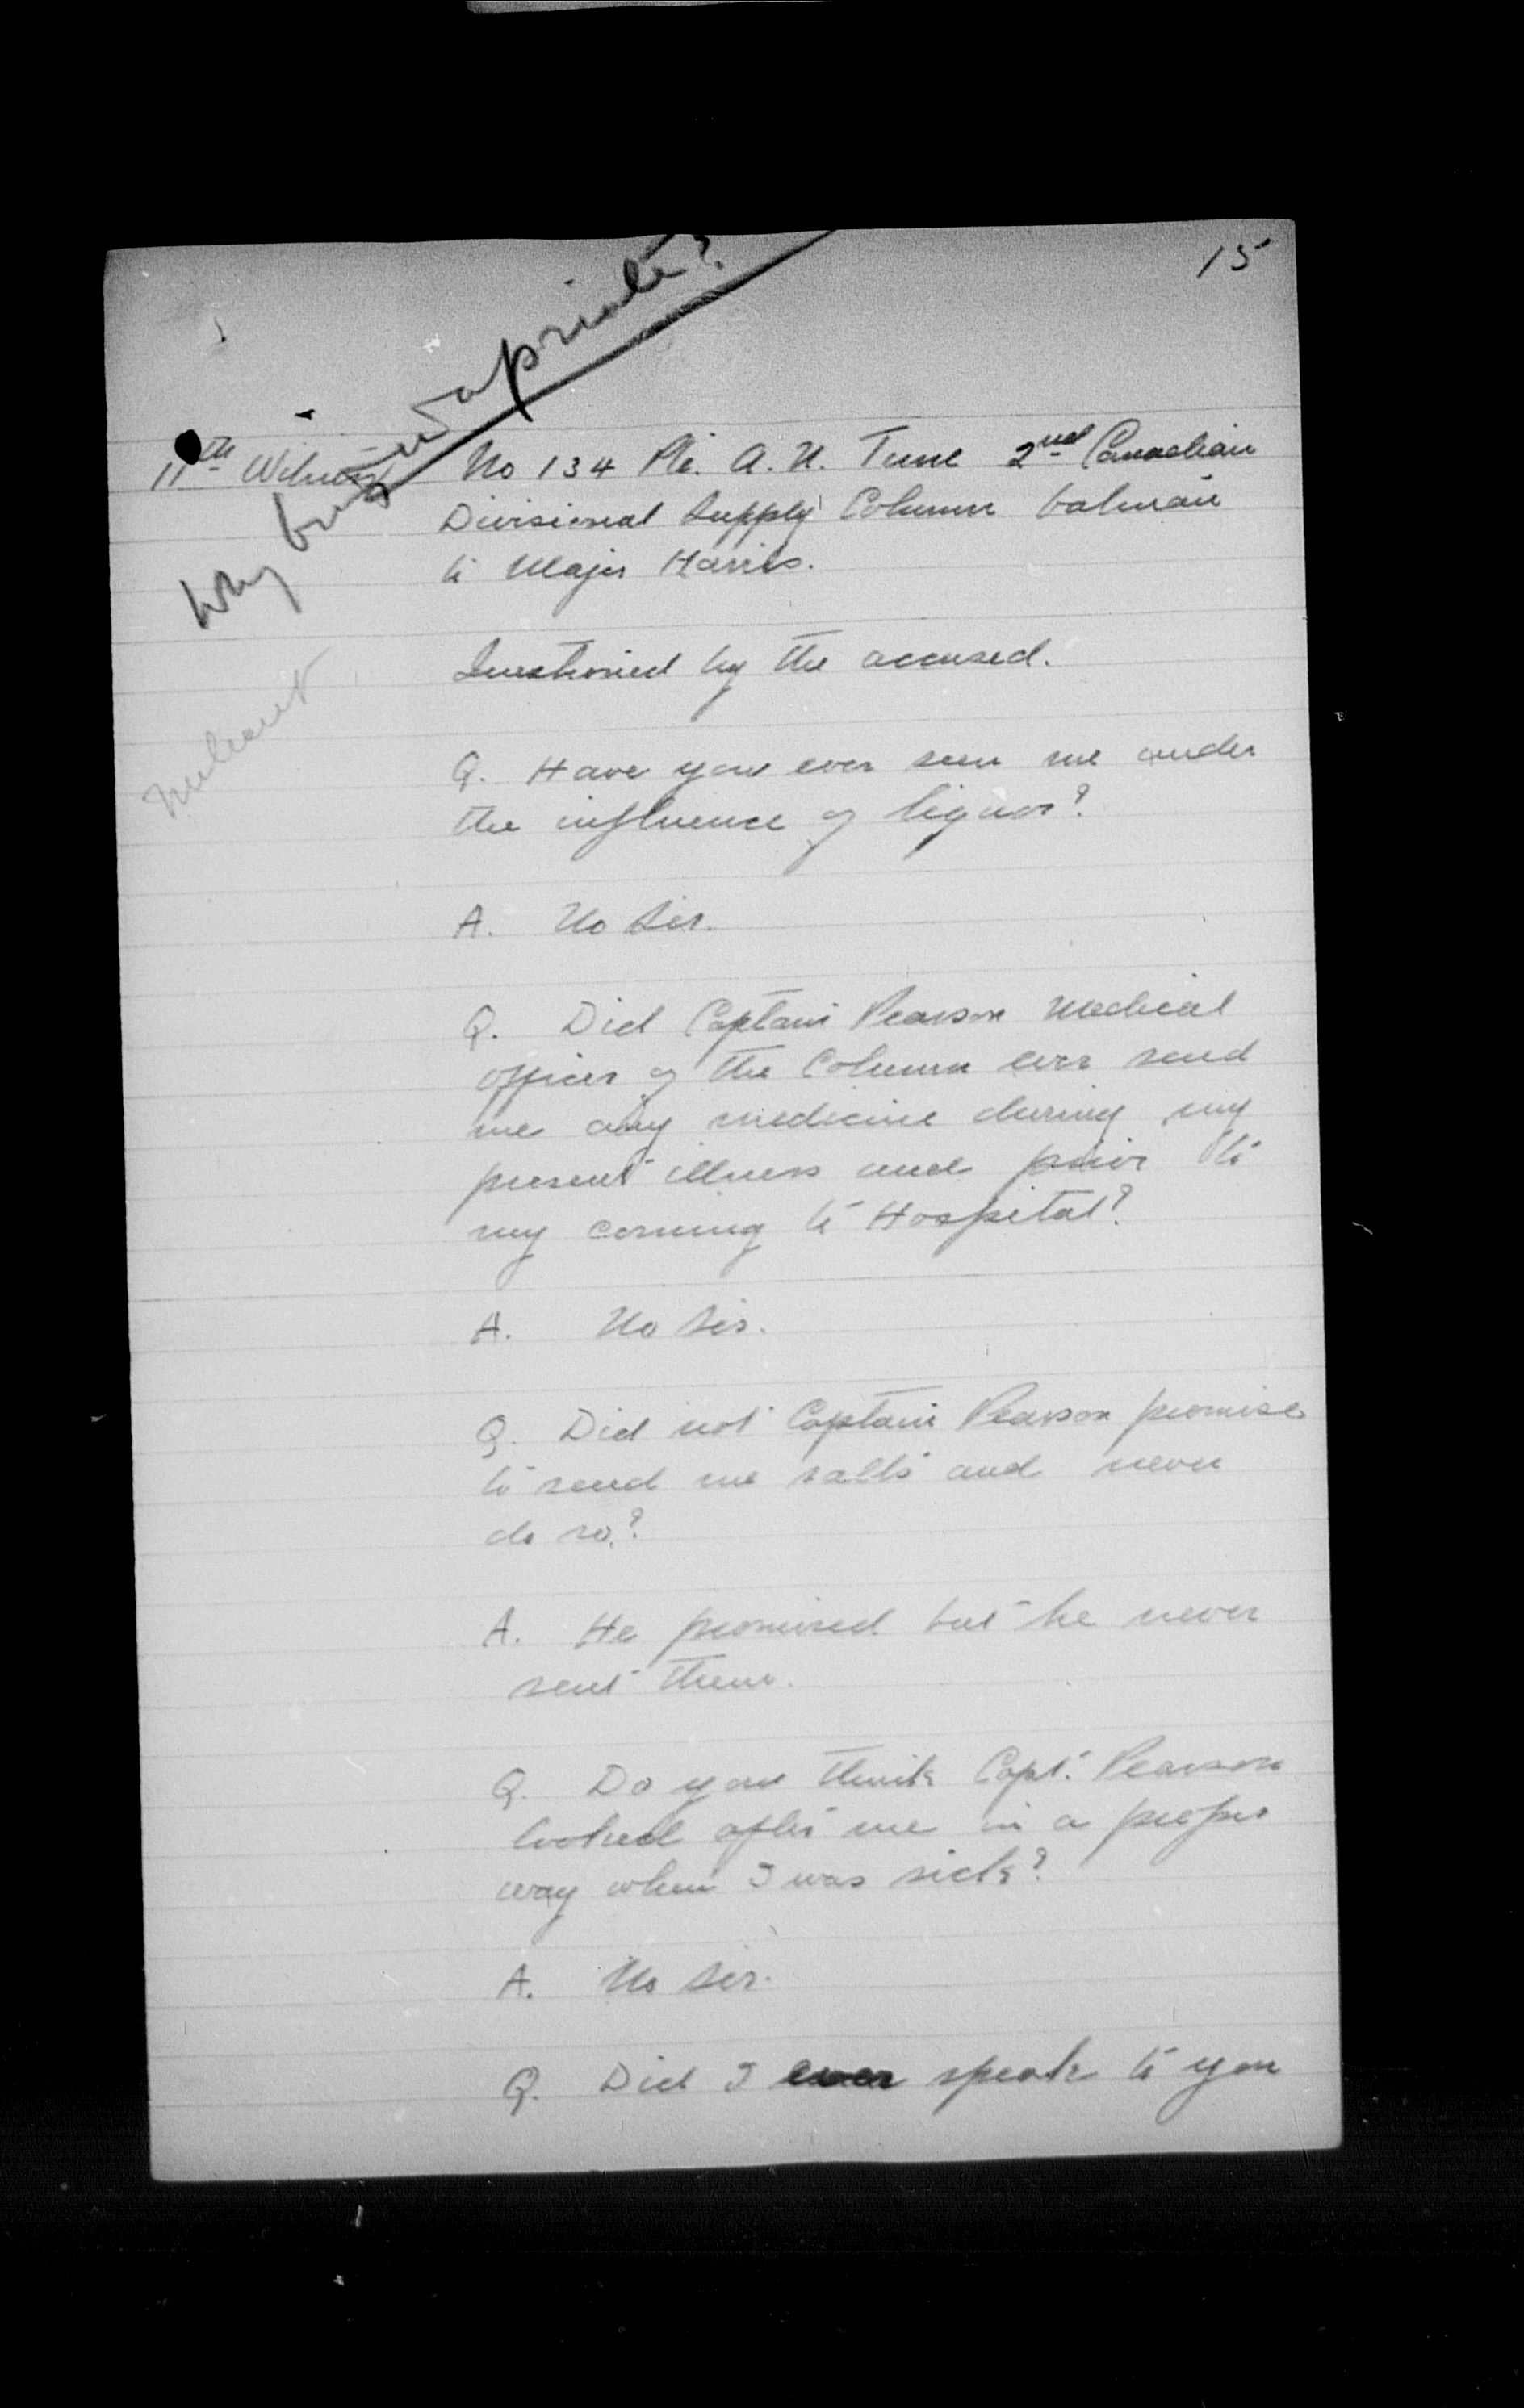 15
Why bring a private?
11th Witness
No 134 Pte. A. N. Tune 2nd Canadian
Divisional Supply Column batman
to Major Harris.
Questioned by the accused.
Q. Have you ever seen me under
the influence of liquor?
A. No Sir.
Q. Did Captain Pearson Medical
Officer of the Column ever send
me any medicine during my
present illness and prior to
my coming to Hospital?
A. No Sir.
Q. Did not Captain Pearson promise
to send me salts and never
do so?
A. He promised but he never
sent them.
Q. Do you think Capt. Pearson
looked after me in a proper
way when I was sick?
A. No Sir.
Q. Did I ever speak to you